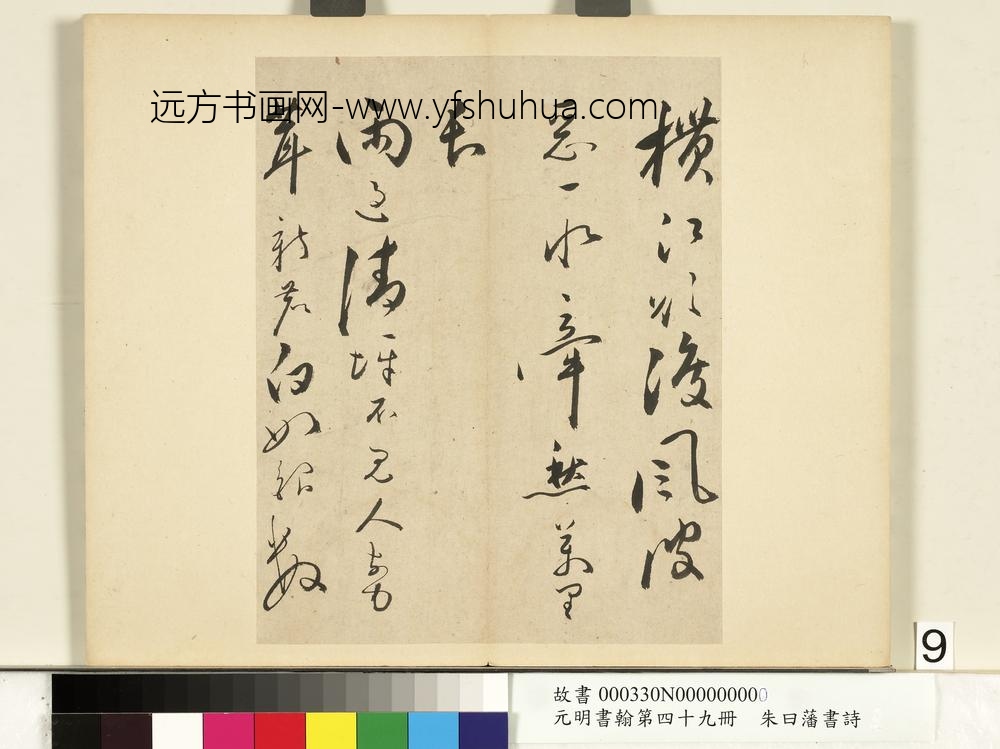 横江欲渡風波
惡一水牽愁萬里
長
雨過清
不見人
茸新
白如銀
远方书画网-www.yfshuhua.com
9
故書 000330N000000000
元明書翰第四十九冊 朱曰藩書詩